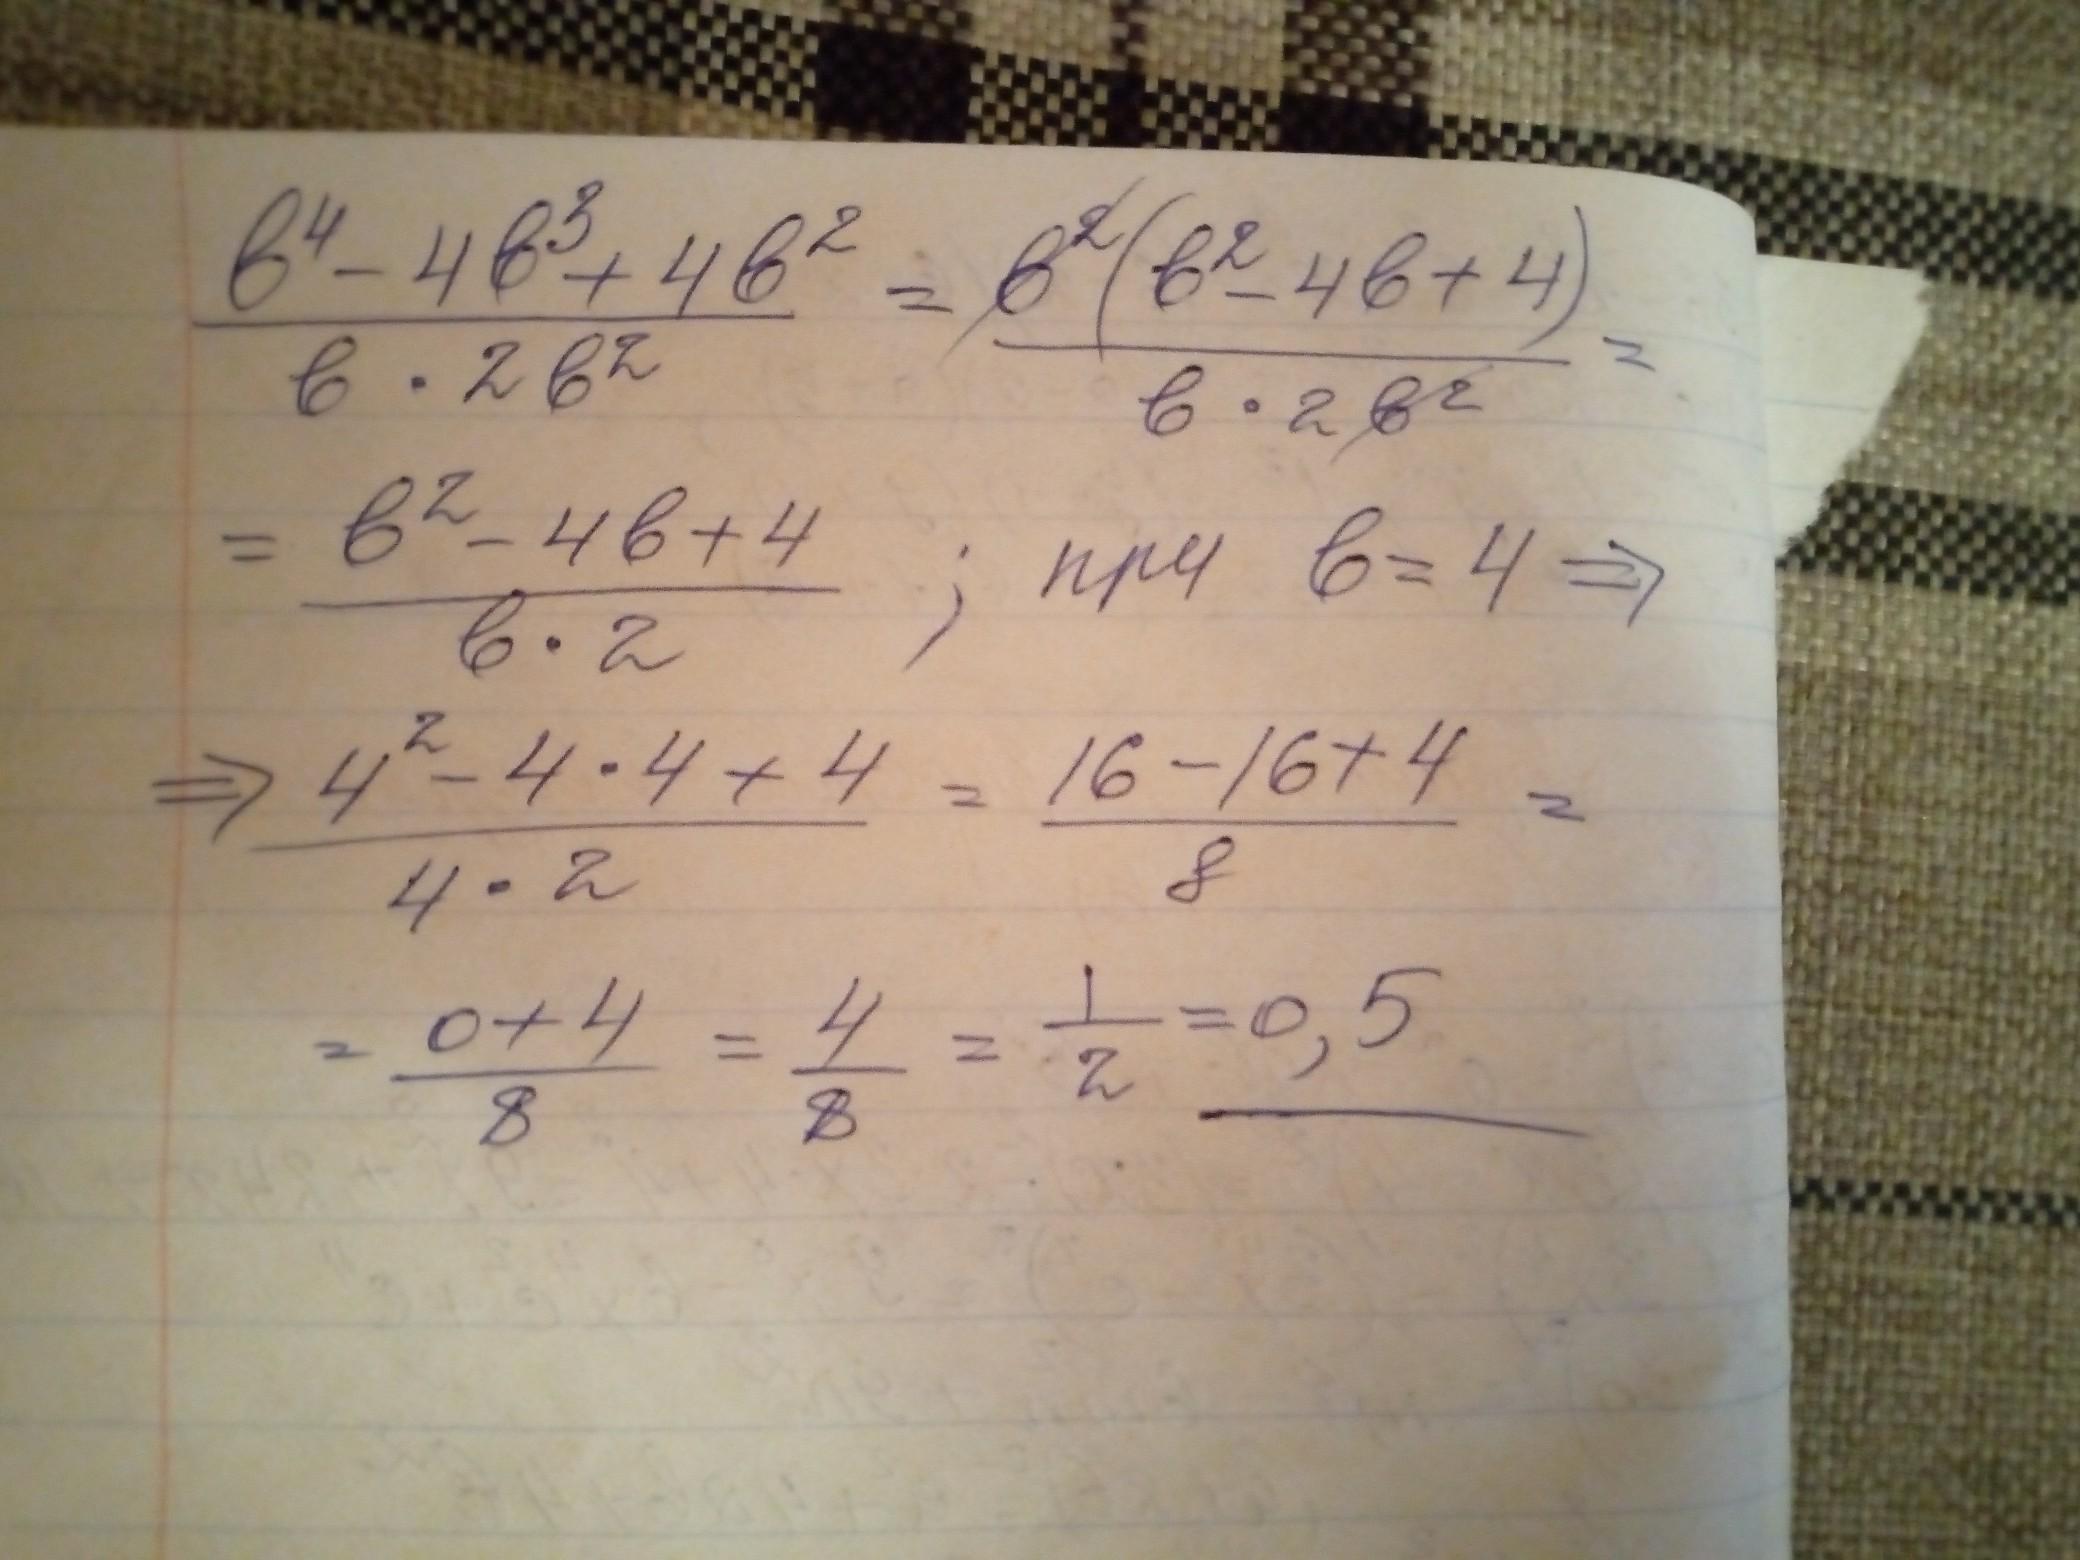 (b⁴ - 4b³ + 4b²) / (b · 2b²) = b²(b² - 4b + 4) / (b · 2b²) =
= (b² - 4b + 4) / (b · 2) ; при b = 4 ⇒
⇒ (4² - 4 · 4 + 4) / (4 · 2) = (16 - 16 + 4) / 8 =
= (0 + 4) / 8 = 4 / 8 = 1 / 2 = 0,5